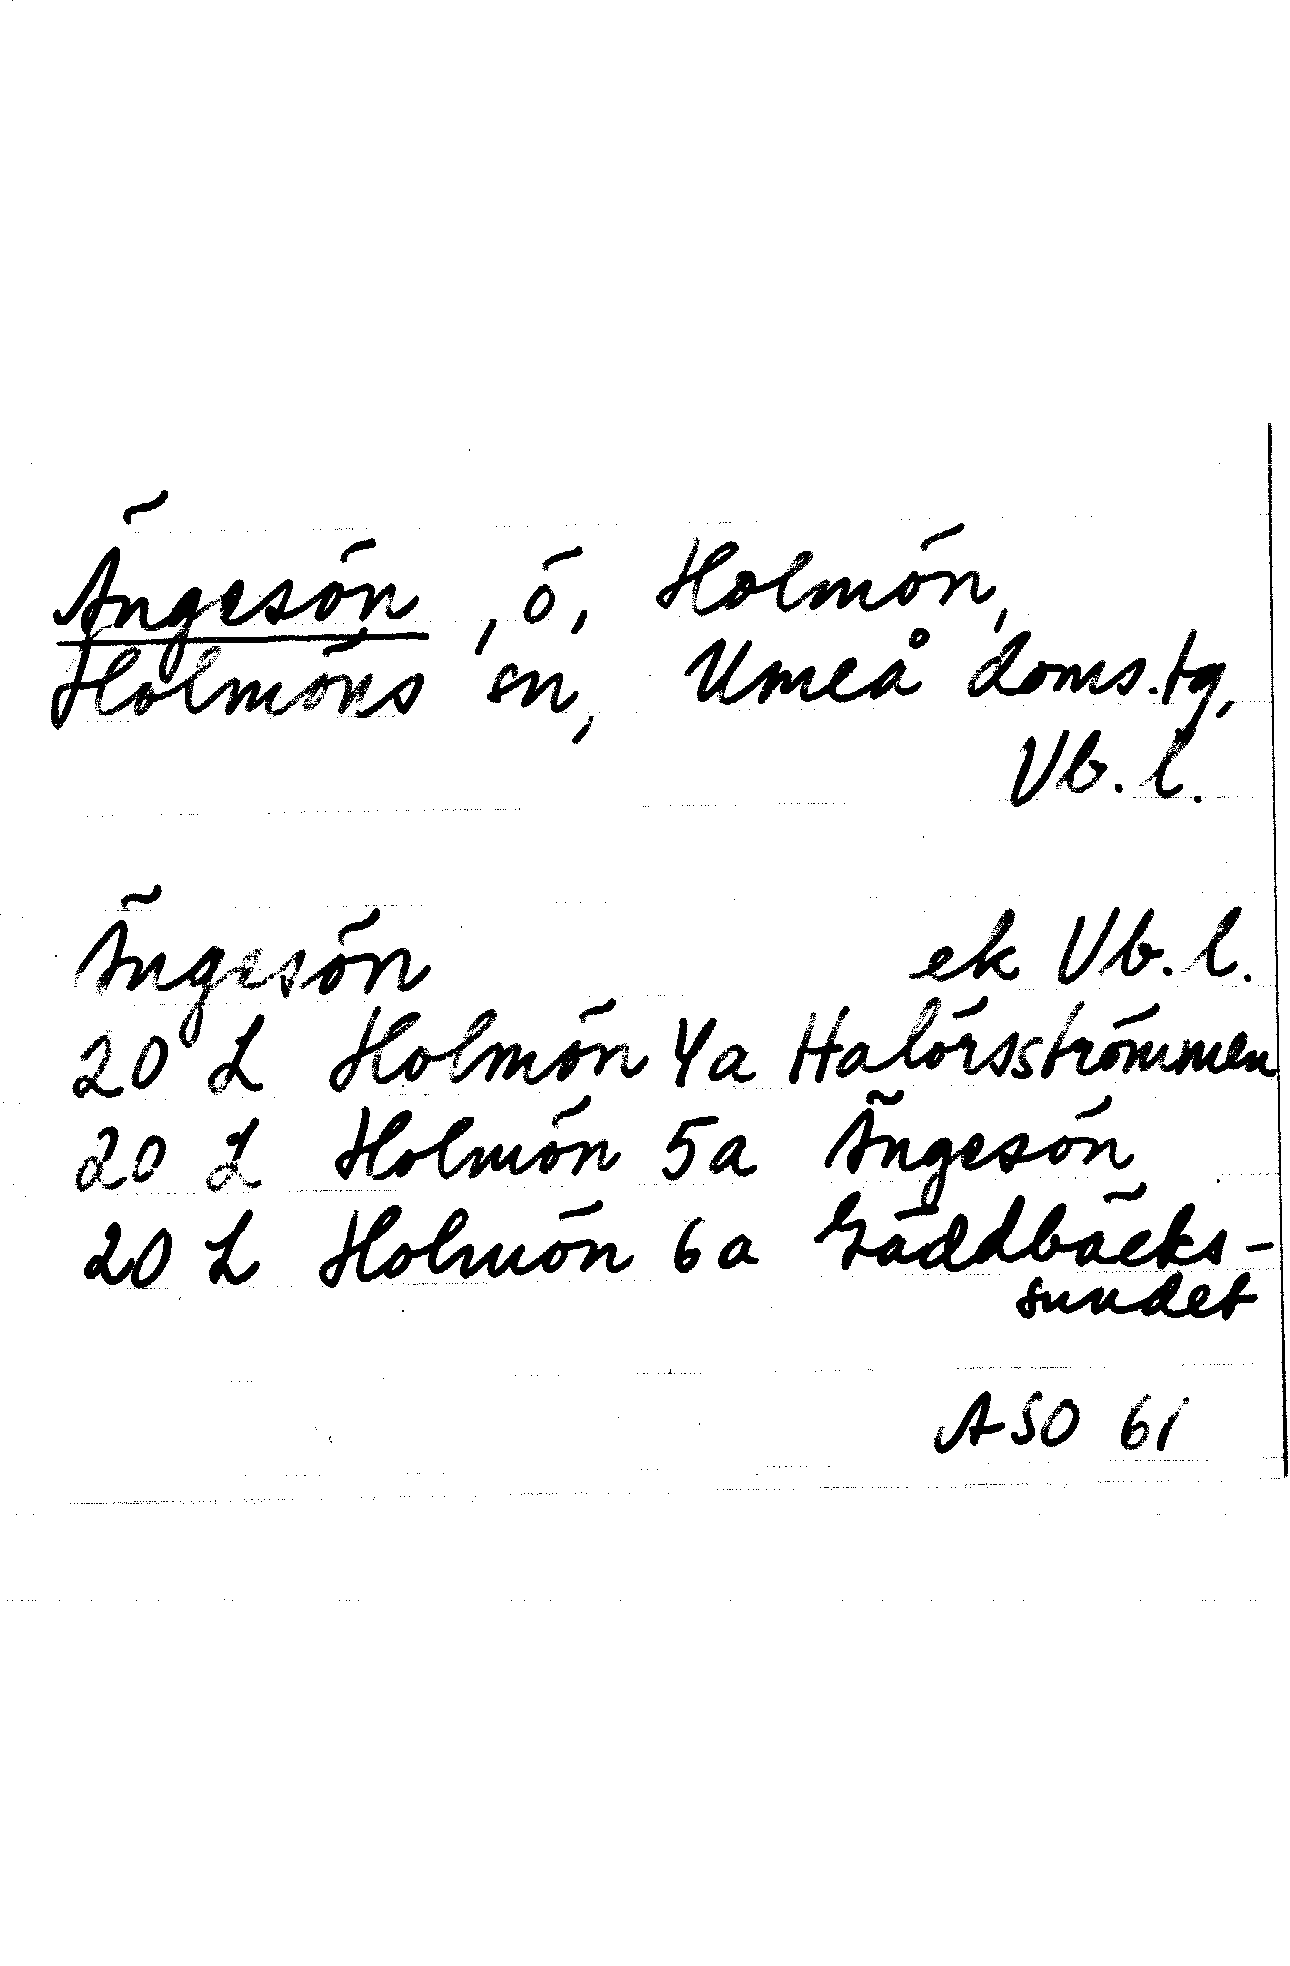 Ängesön, ö, Holmön,
Holmöns sn, Umeå doms.tg,
Vb. l.
Ängesön ek Vb. l.
20 L Holmön 4a Halörsströmmen
20 L Holmön 5a Ängesön
20 L Holmön 6a Gäddbäcks-
sundet
ASO 61